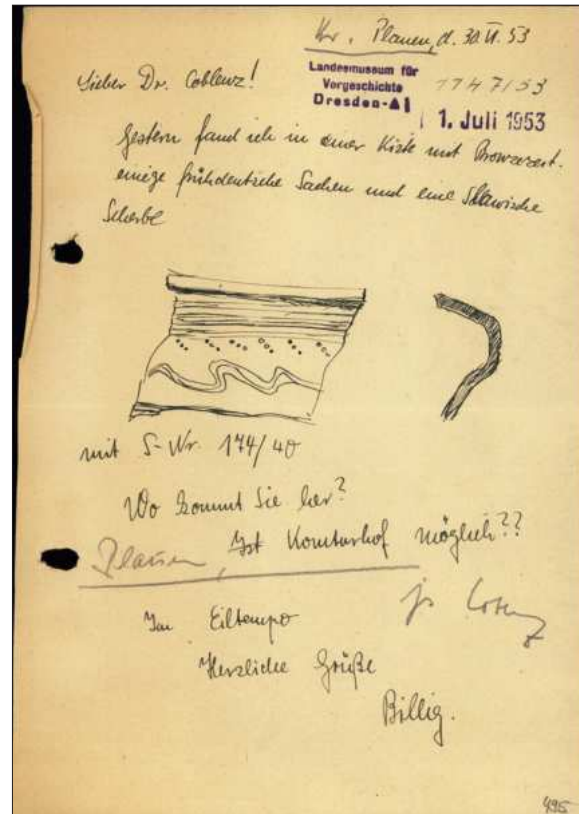 Plauen, d. 30.VI.53
Lieber Dr. Coblenz!
Landesmuseum für
Vorgeschichte
Dresden-A
1747/53
1. Juli 1953
Gestern fand ich in einer Kiste mit Bronzezeit.
einige frühdeutsche Sachen und eine Slawische
Scherbe
mit S-Nr. 174/40
Wo kommt Sie her?
Plauen, Ist Komturhof möglich??
Im Eiltempo
Herzliche Grüße
Billig.
495